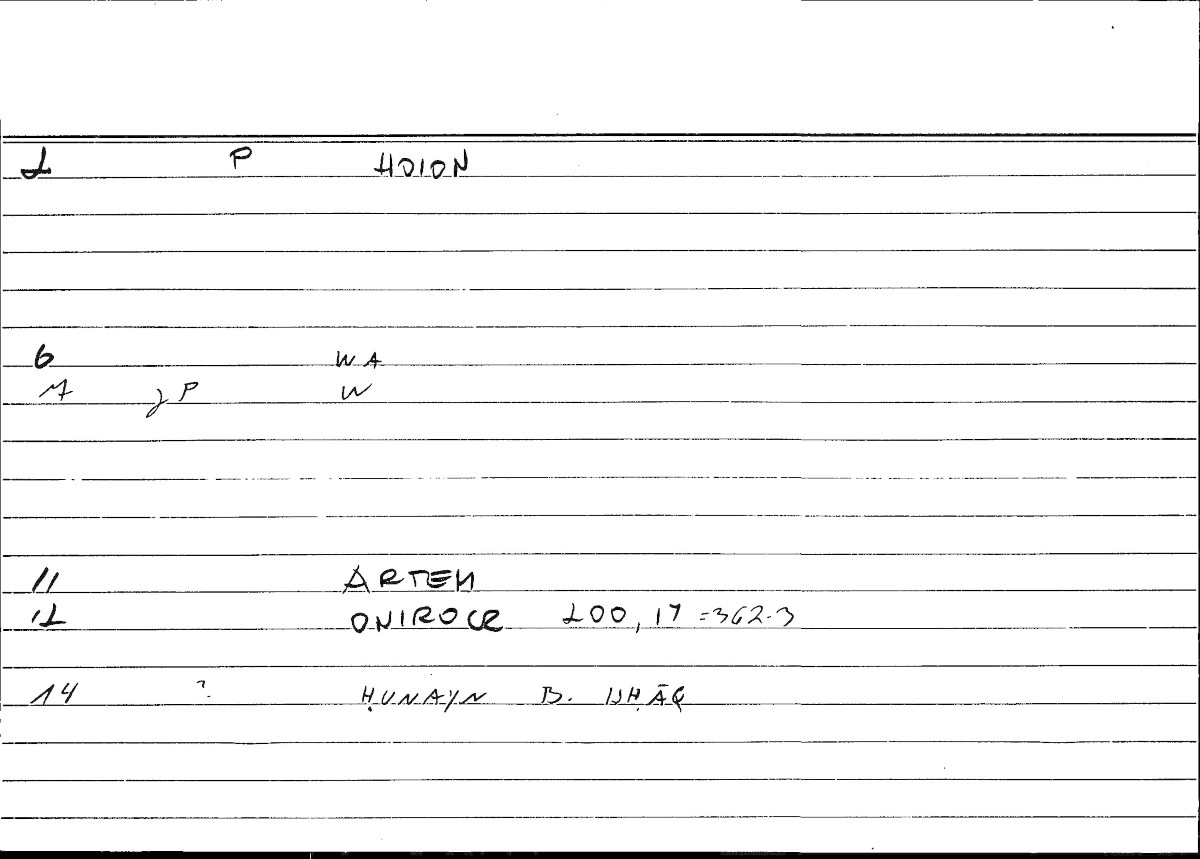 2 P HDION
6 W A
7 P W
11 ARTEM
12 ONIROCR 200,17 =362.3
14 ? ḤUNAYN B. ISḤĀQ